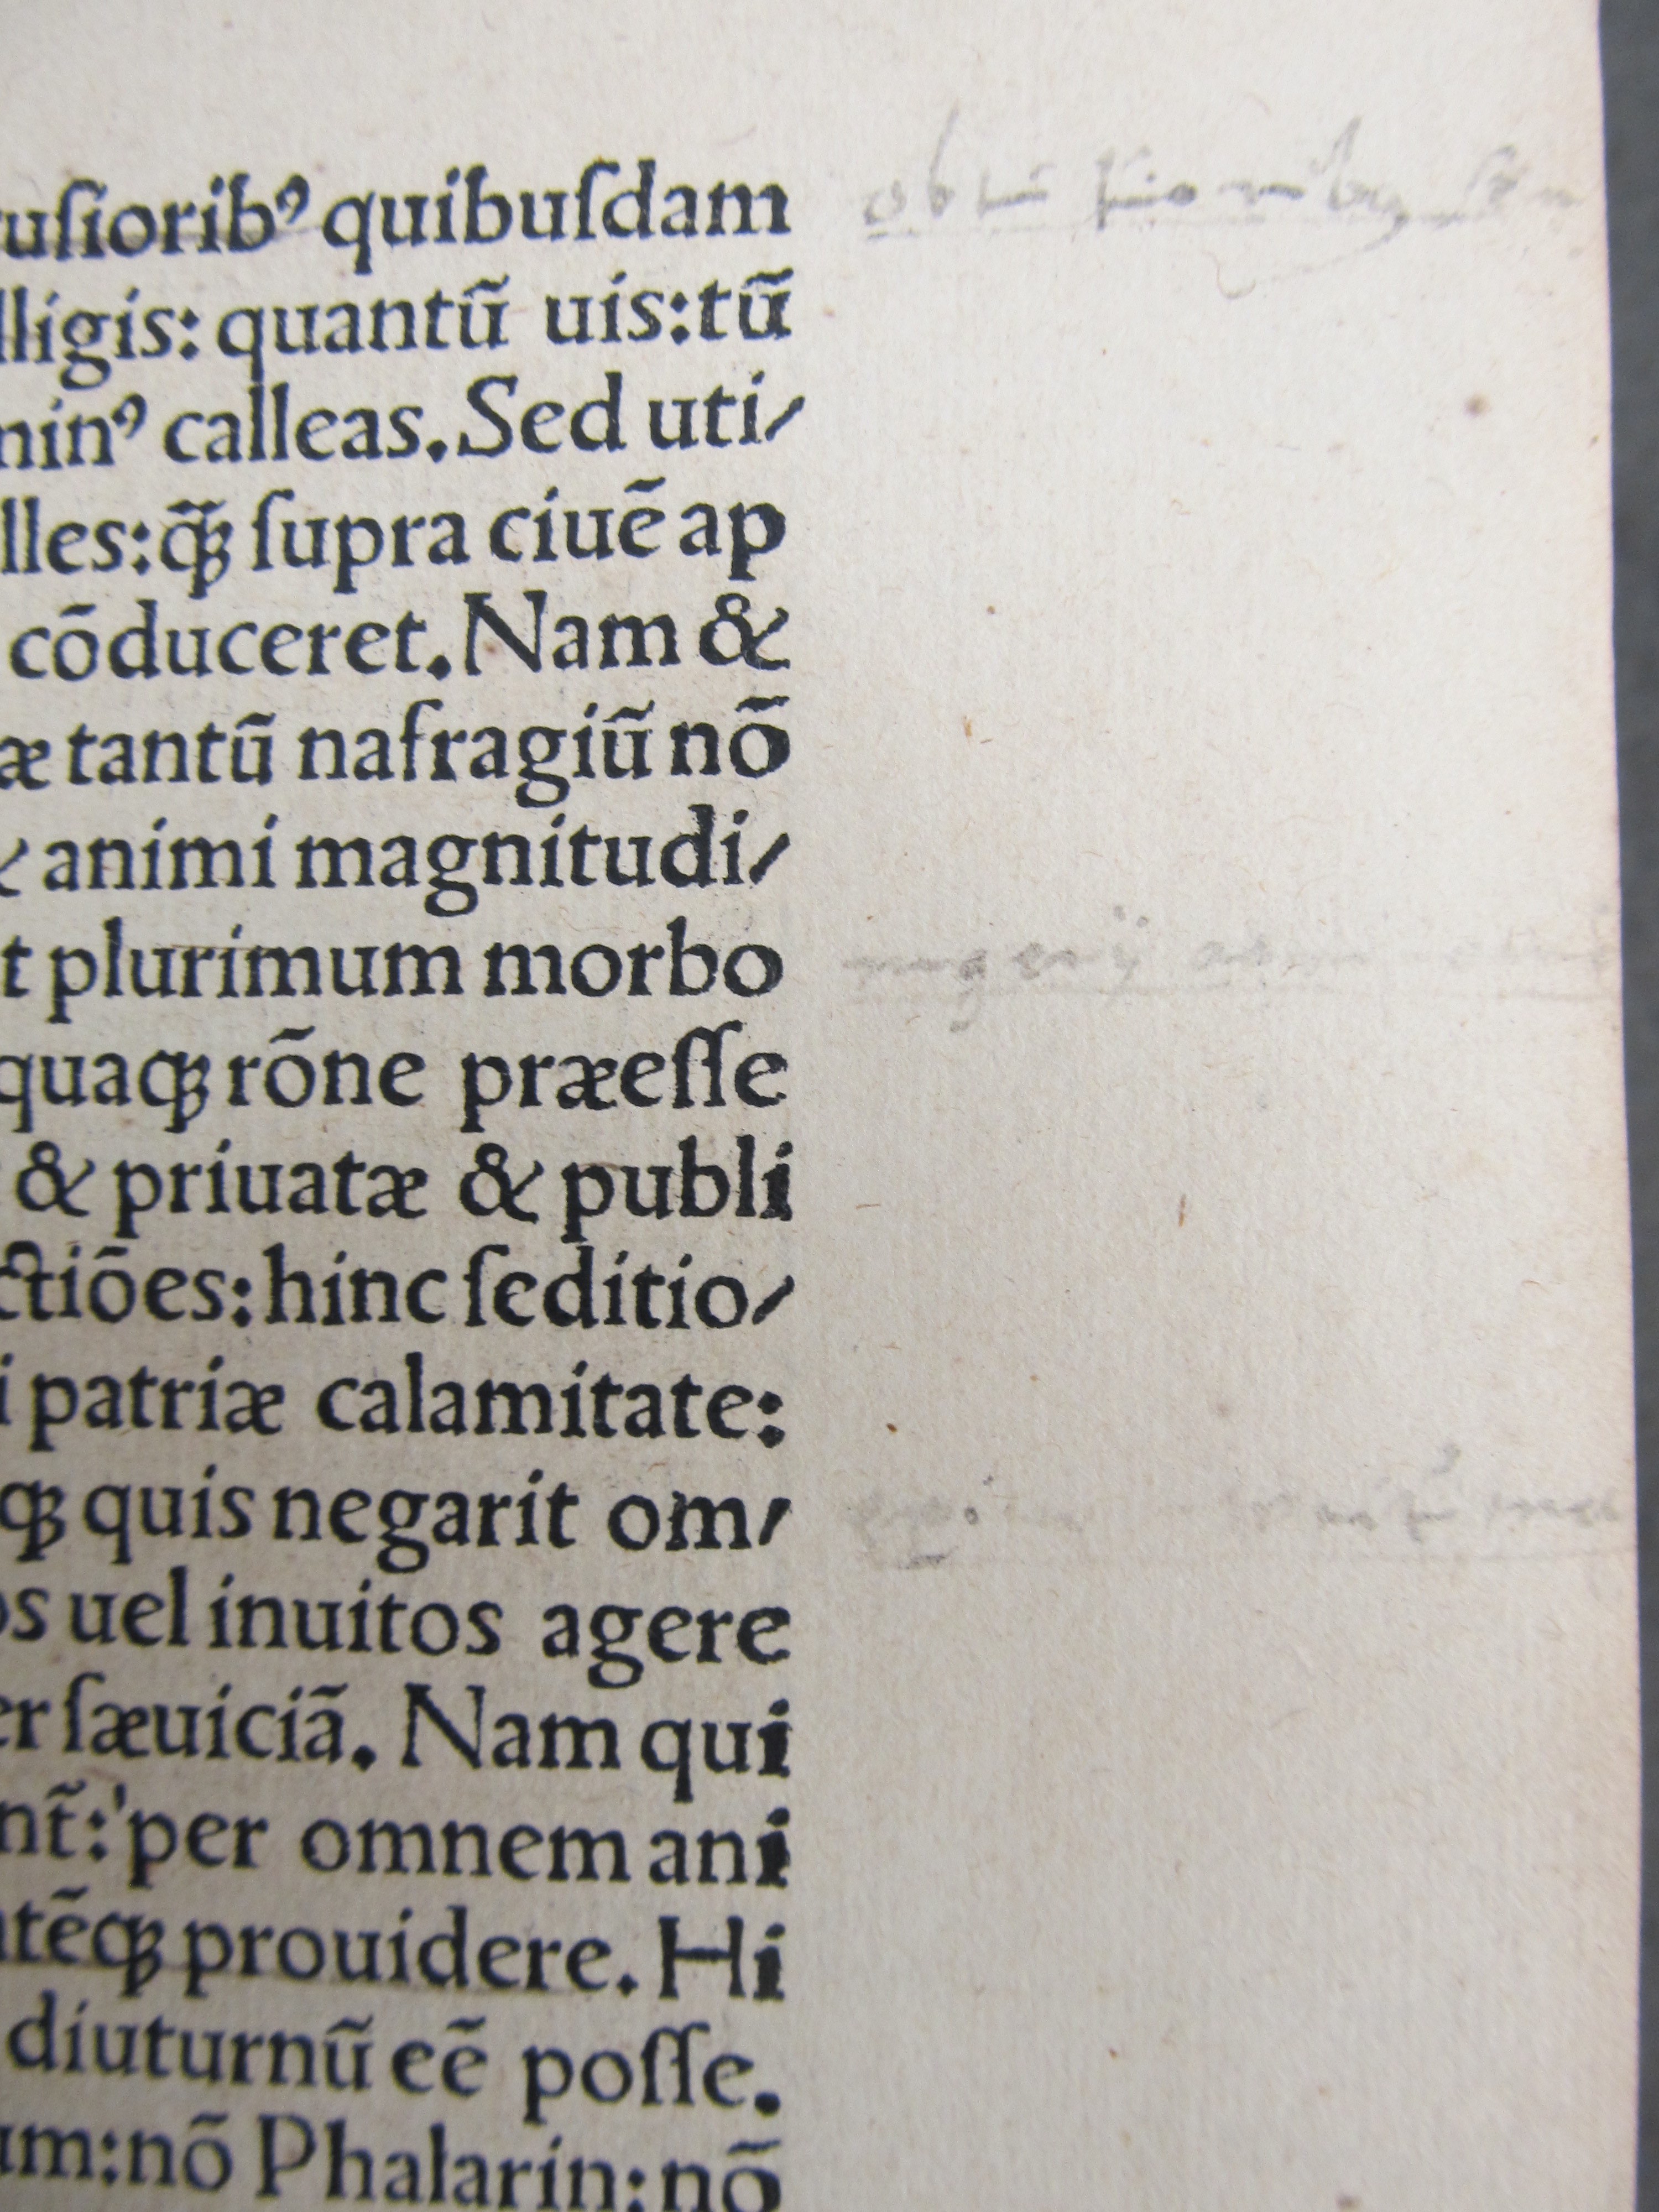 usiorib⁹ quibuſdam
lligis: quantũ uis:tũ
min⁹ calleas. Sed uti/
lles:q̃ꝫ ſupra ciuẽ ap
cõduceret. Nam &
æ tantũ nafragiũ nõ
& animi magnitudi/
t plurimum morbo
quaqꝫ rõne præeſſe
& priuatæ & publi
ctiões: hinc ſeditio/
i patriæ calamitate:
qꝫ quis negarit om/
os uel inuitos agere
er ſæuiciã. Nam qui
nt̃: per omnem ani
ntẽqꝫ prouidere. Hi
diuturnũ eẽ poſſe.
um:nõ Phalarin:nõ